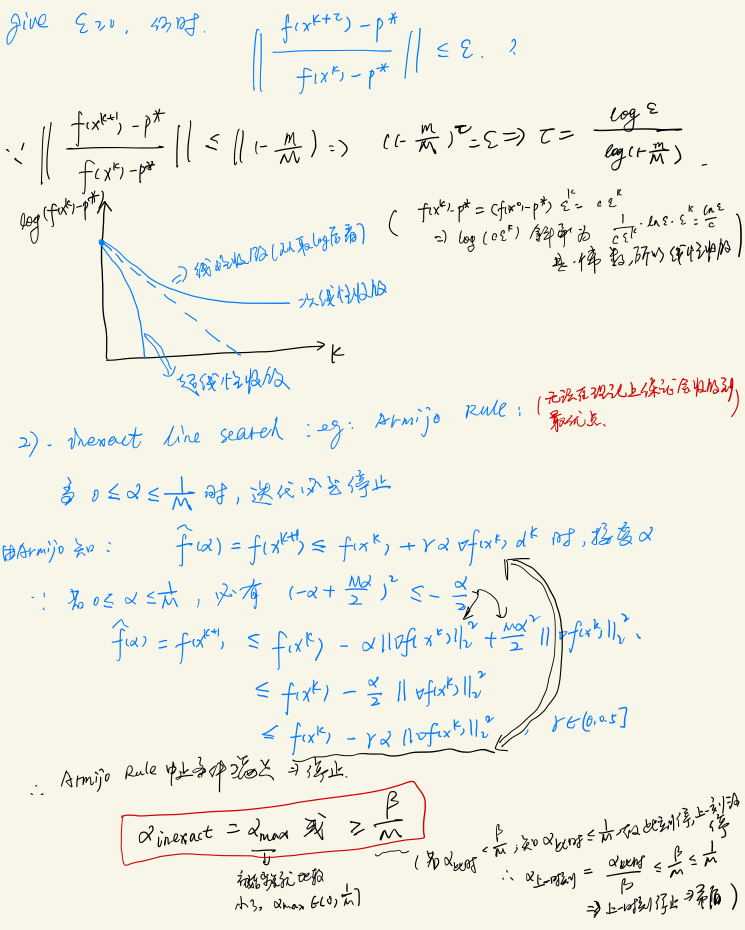 give ε≥0, 何时. ‖ (f(x^{k+τ}) - p*) / (f(x^k) - p*) ‖ ≤ ε. ?
∵ ‖ (f(x^{k+1}) - p*) / (f(x^k) - p*) ‖ ≤ ‖1 - m/M) ⇒ (1 - m/M)^τ = ε ⇒ τ = log ε / log(1 - m/M).
log(f(x^k) - p*)
( f(x^k) - p* = (f(x^0) - p*) ε^k = c ε^k
⇒ log(cε^k) 斜率为 1/(cε^k) · lnε · ε^k = lnε/c
是常数, 所以线性收敛 )
⇒ 线性收敛 (以取log后看)
次线性收敛
k
超线性收敛
2). inexact line search : eg: Armijo Rule: (无法在理论上保证会收敛到
最优点.)
当 0 ≤ α ≤ 1/M 时, 迭代必会停止
由Armijo 知: f̂(α) = f(x^{k+1}) ≤ f(x^k) + γα ∇f(x^k) d^k 时, 接受α
∵ 若 0 ≤ α ≤ 1/M, 必有 (-α + Mα/2)^2 ≤ -α/2
f̂(α) = f(x^{k+1}) ≤ f(x^k) - α‖∇f(x^k)‖₂² + Mα²/2 ‖∇f(x^k)‖₂²
≤ f(x^k) - α/2 ‖∇f(x^k)‖₂²
≤ f(x^k) - γα ‖∇f(x^k)‖₂², γ∈(0,0.5]
∴ Armijo Rule 中止条件满足 ⇒ 停止.
α inexact = α max 或 ≥ β/M
初始 就比较
小了, α max ∈ (0, 1/M]
(若 α此时 < β/M, 知 α此时 ≤ 1/M 在此刻停, 上一刻没
停
∴ α上一时刻 = α此时/β ≤ β/M ≤ 1/M
⇒ 上一时刻停止 ⇒ 矛盾 )